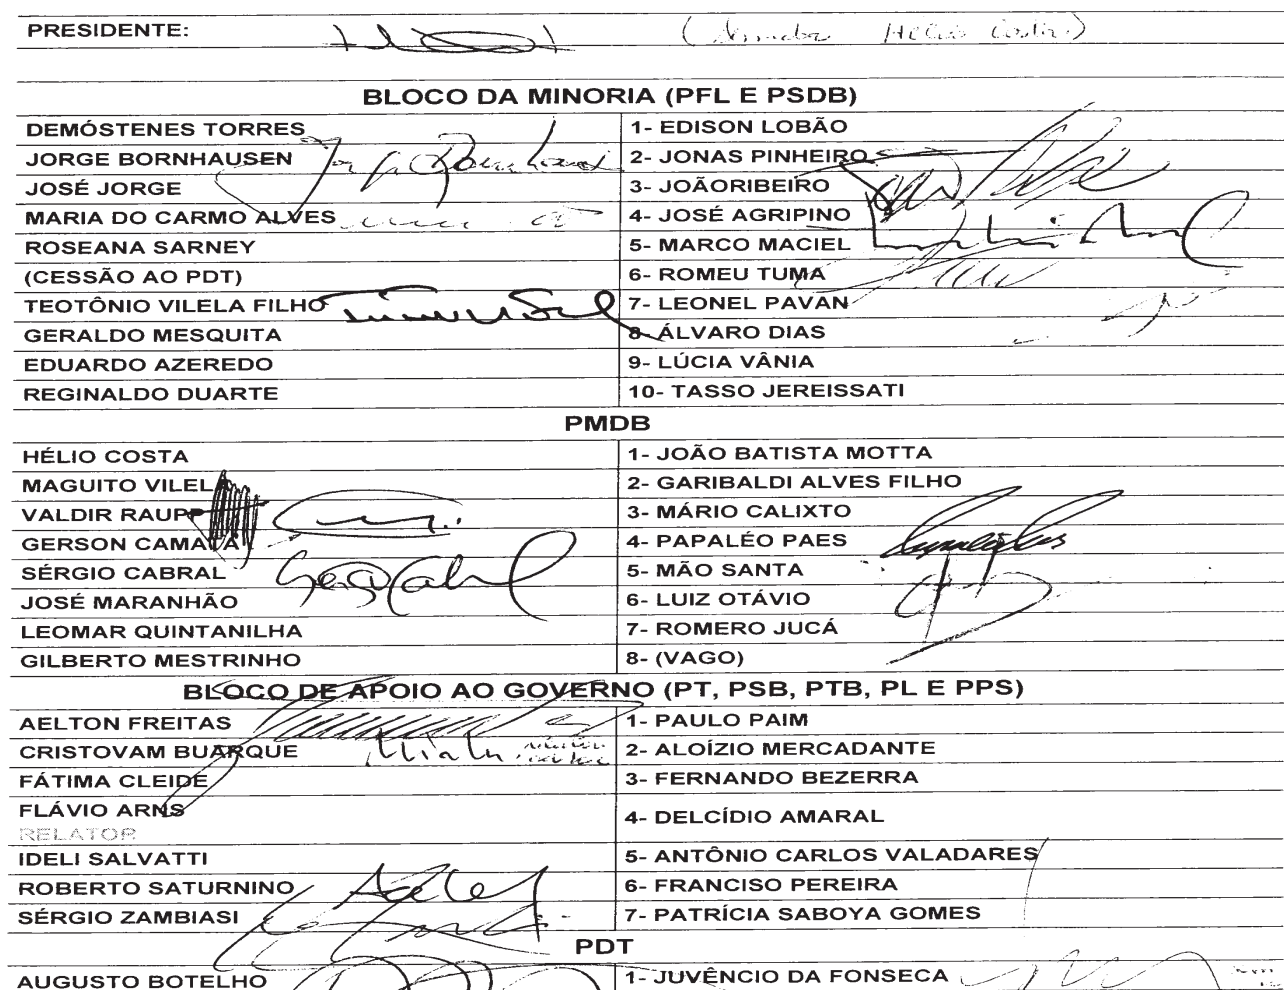 PRESIDENTE: Hélio Costa)
BLOCO DA MINORIA (PFL E PSDB)
DEMÓSTENES TORRES 1- EDISON LOBÃO
JORGE BORNHAUSEN 2- JONAS PINHEIRO
JOSÉ JORGE 3- JOÃORIBEIRO
MARIA DO CARMO ALVES 4- JOSÉ AGRIPINO
ROSEANA SARNEY 5- MARCO MACIEL
(CESSÃO AO PDT) 6- ROMEU TUMA
TEOTÔNIO VILELA FILHO 7- LEONEL PAVAN
GERALDO MESQUITA 8- ÁLVARO DIAS
EDUARDO AZEREDO 9- LÚCIA VÂNIA
REGINALDO DUARTE 10- TASSO JEREISSATI
PMDB
HÉLIO COSTA 1- JOÃO BATISTA MOTTA
MAGUITO VILELA 2- GARIBALDI ALVES FILHO
VALDIR RAUPP 3- MÁRIO CALIXTO
GERSON CAMATA 4- PAPALÉO PAES
SÉRGIO CABRAL 5- MÃO SANTA
JOSÉ MARANHÃO 6- LUIZ OTÁVIO
LEOMAR QUINTANILHA 7- ROMERO JUCÁ
GILBERTO MESTRINHO 8- (VAGO)
BLOCO DE APOIO AO GOVERNO (PT, PSB, PTB, PL E PPS)
AELTON FREITAS 1- PAULO PAIM
CRISTOVAM BUARQUE 2- ALOÍZIO MERCADANTE
FÁTIMA CLEIDE 3- FERNANDO BEZERRA
FLÁVIO ARNS 4- DELCÍDIO AMARAL
RELATOR
IDELI SALVATTI 5- ANTÔNIO CARLOS VALADARES
ROBERTO SATURNINO 6- FRANCISO PEREIRA
SÉRGIO ZAMBIASI 7- PATRÍCIA SABOYA GOMES
PDT
AUGUSTO BOTELHO 1- JUVÊNCIO DA FONSECA